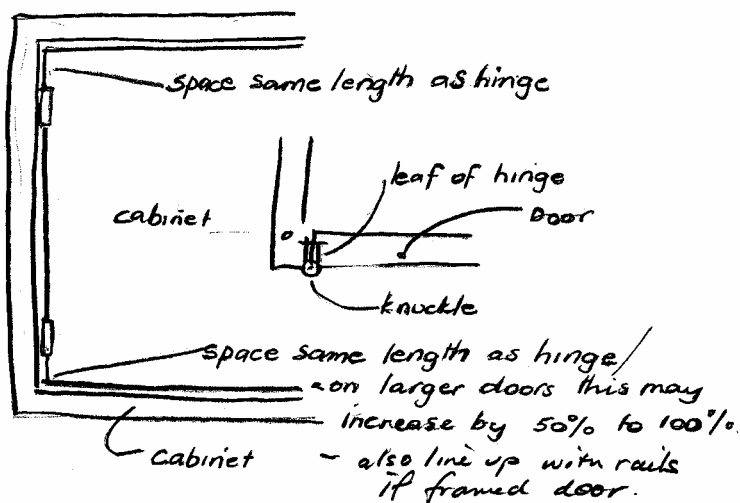 space same length as hinge
leaf of hinge
Door
cabinet
knuckle
space same length as hinge/
- on larger doors this may
increase by 50% to 100%.
cabinet
- also line up with rails
if framed door.